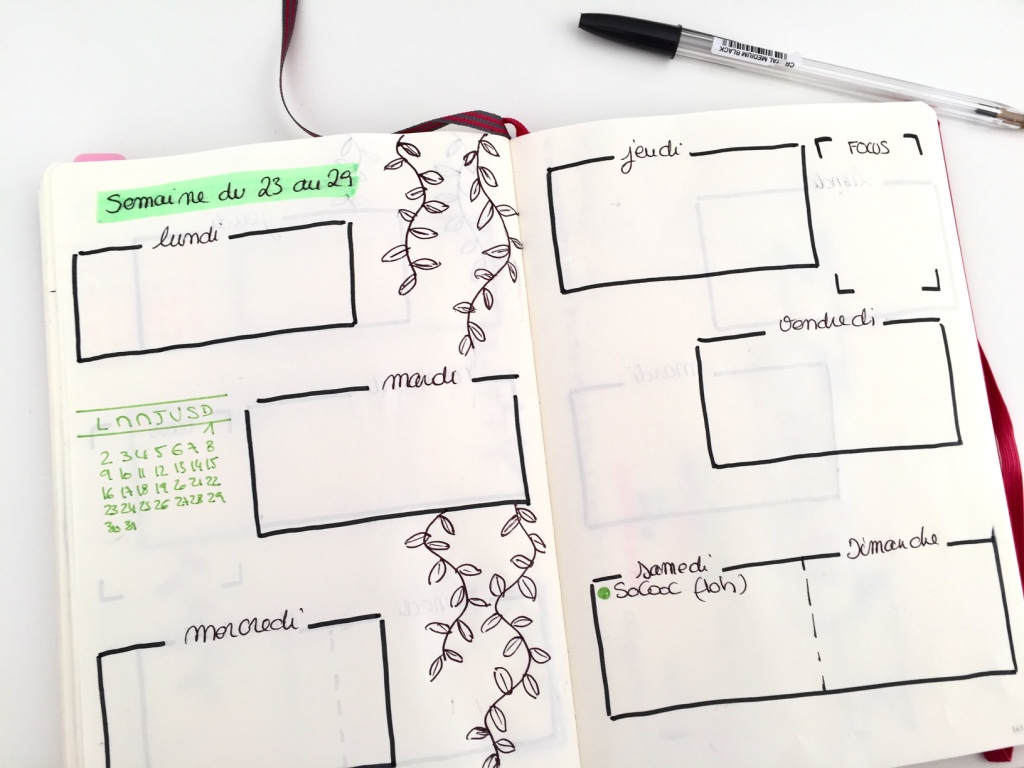 Semaine du 23 au 29
lundi
mardi
L M M J V S D
1
2 3 4 5 6 7 8
9 10 11 12 13 14 15
16 17 18 19 20 21 22
23 24 25 26 27 28 29
30 31
mercredi
jeudi
FOCUS
vendredi
samedi
Dimanche
SoCooC (10h)
MEDIUM BLACK